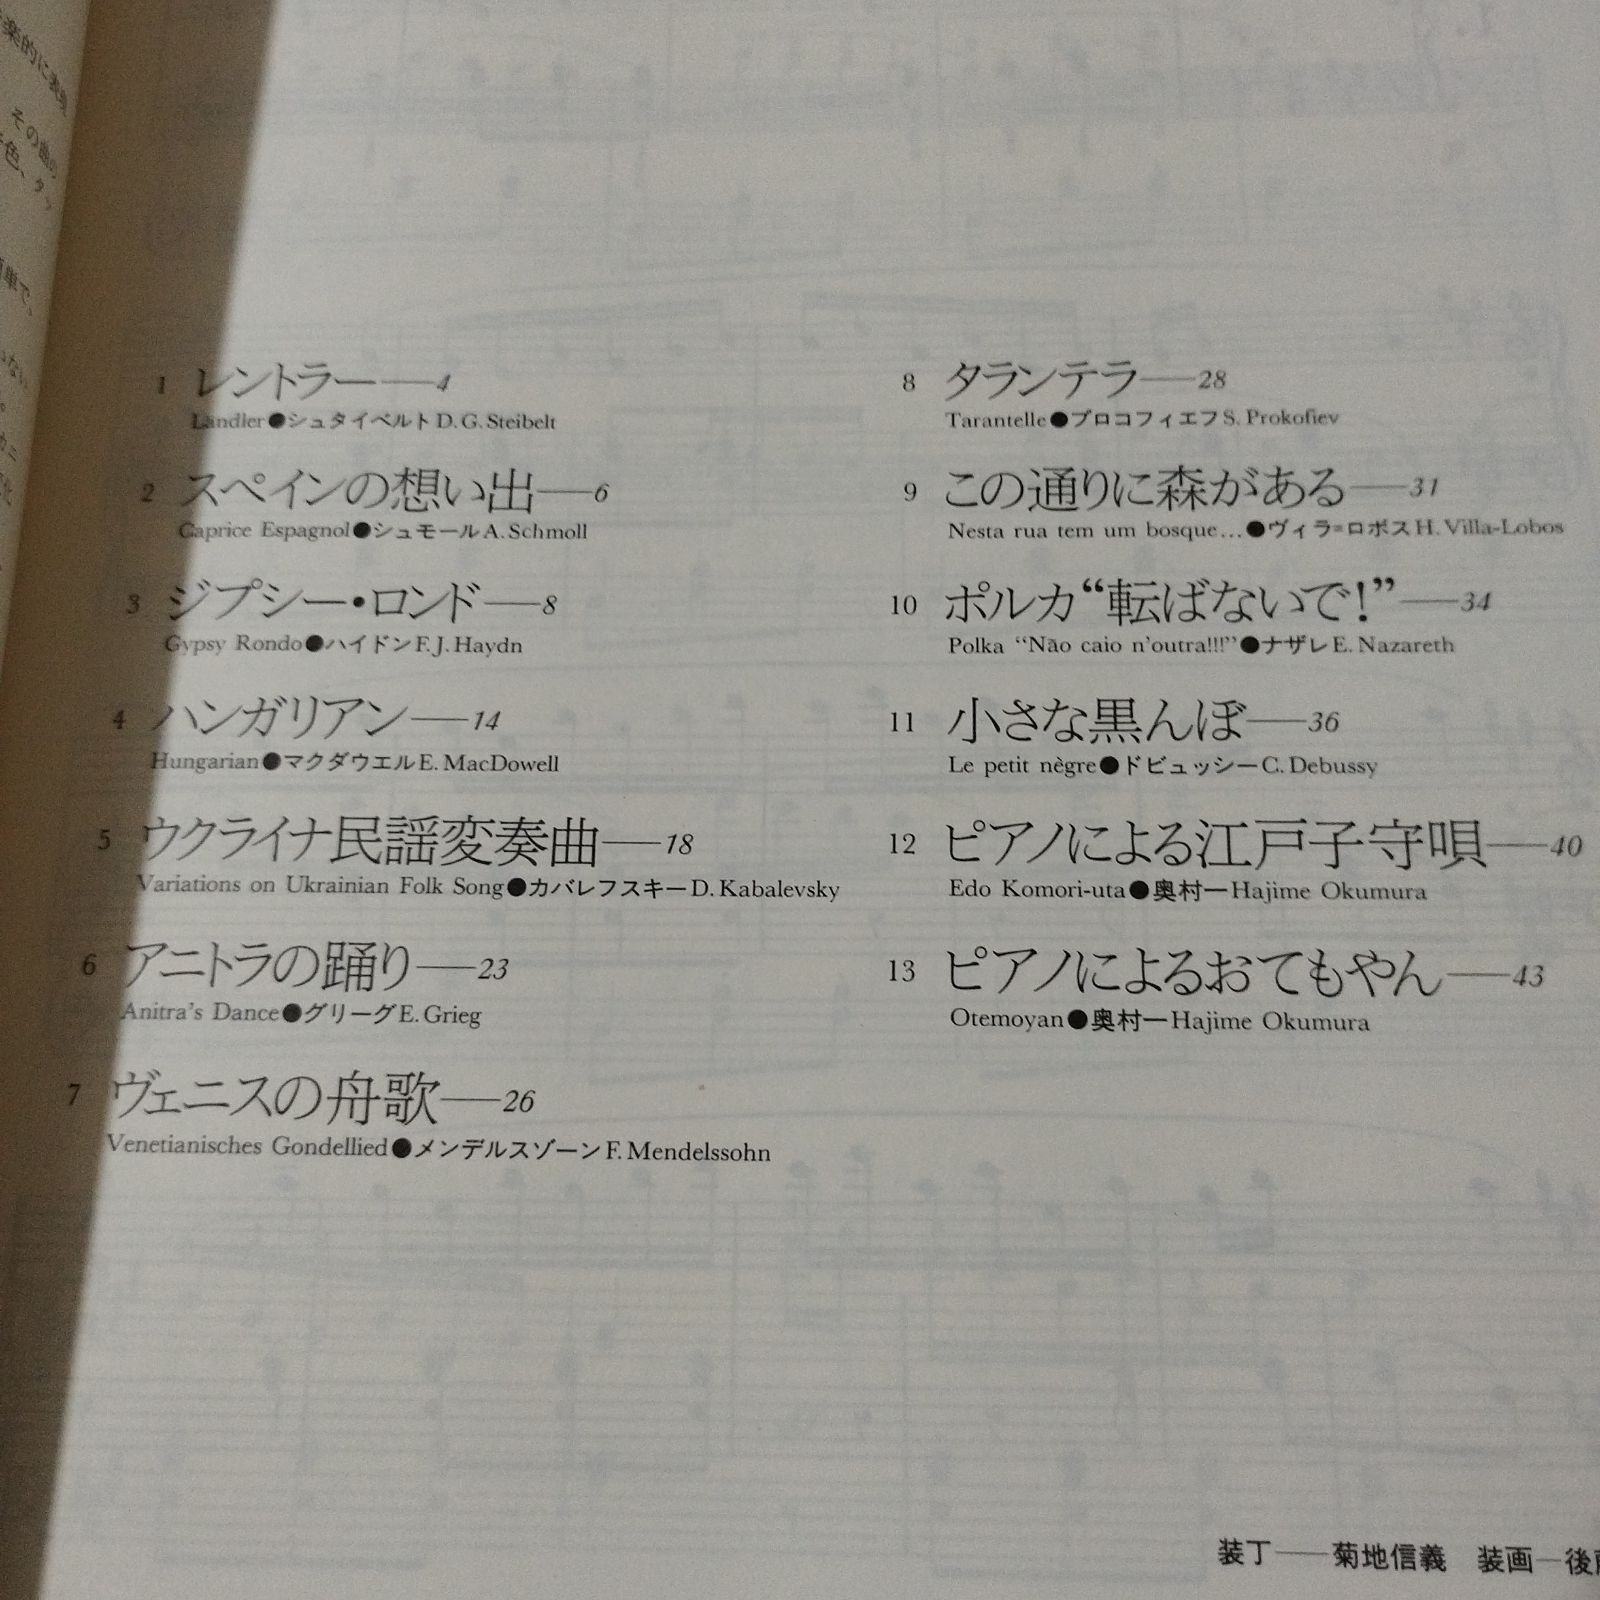 楽的に表現
その曲の
色、タッ
単で、
ない
カニ
1 レントラー――4
Ländler●シュタイベルト D.G.Steibelt
2 スペインの想い出――6
Caprice Espagnol●シュモール A.Schmoll
3 ジプシー・ロンド――8
Gypsy Rondo●ハイドン F.J.Haydn
4 ハンガリアン――14
Hungarian●マクダウエル E.MacDowell
5 ウクライナ民謡変奏曲――18
Variations on Ukrainian Folk Song●カバレフスキー D.Kabalevsky
6 アニトラの踊り――23
Anitra's Dance●グリーグ E.Grieg
7 ヴェニスの舟歌――26
Venetianisches Gondellied●メンデルスゾーン F.Mendelssohn
8 タランテラ――28
Tarantelle●プロコフィエフ S.Prokofiev
9 この通りに森がある――31
Nesta rua tem um bosque…●ヴィラ=ロボス H.Villa-Lobos
10 ポルカ“転ばないで!”――34
Polka “Não caio n'outra!!!”●ナザレ E.Nazareth
11 小さな黒んぼ――36
Le petit nègre●ドビュッシー C.Debussy
12 ピアノによる江戸子守唄――40
Edo Komori-uta●奥村一 Hajime Okumura
13 ピアノによるおてもやん――43
Otemoyan●奥村一 Hajime Okumura
装丁――菊地信義 装画―後